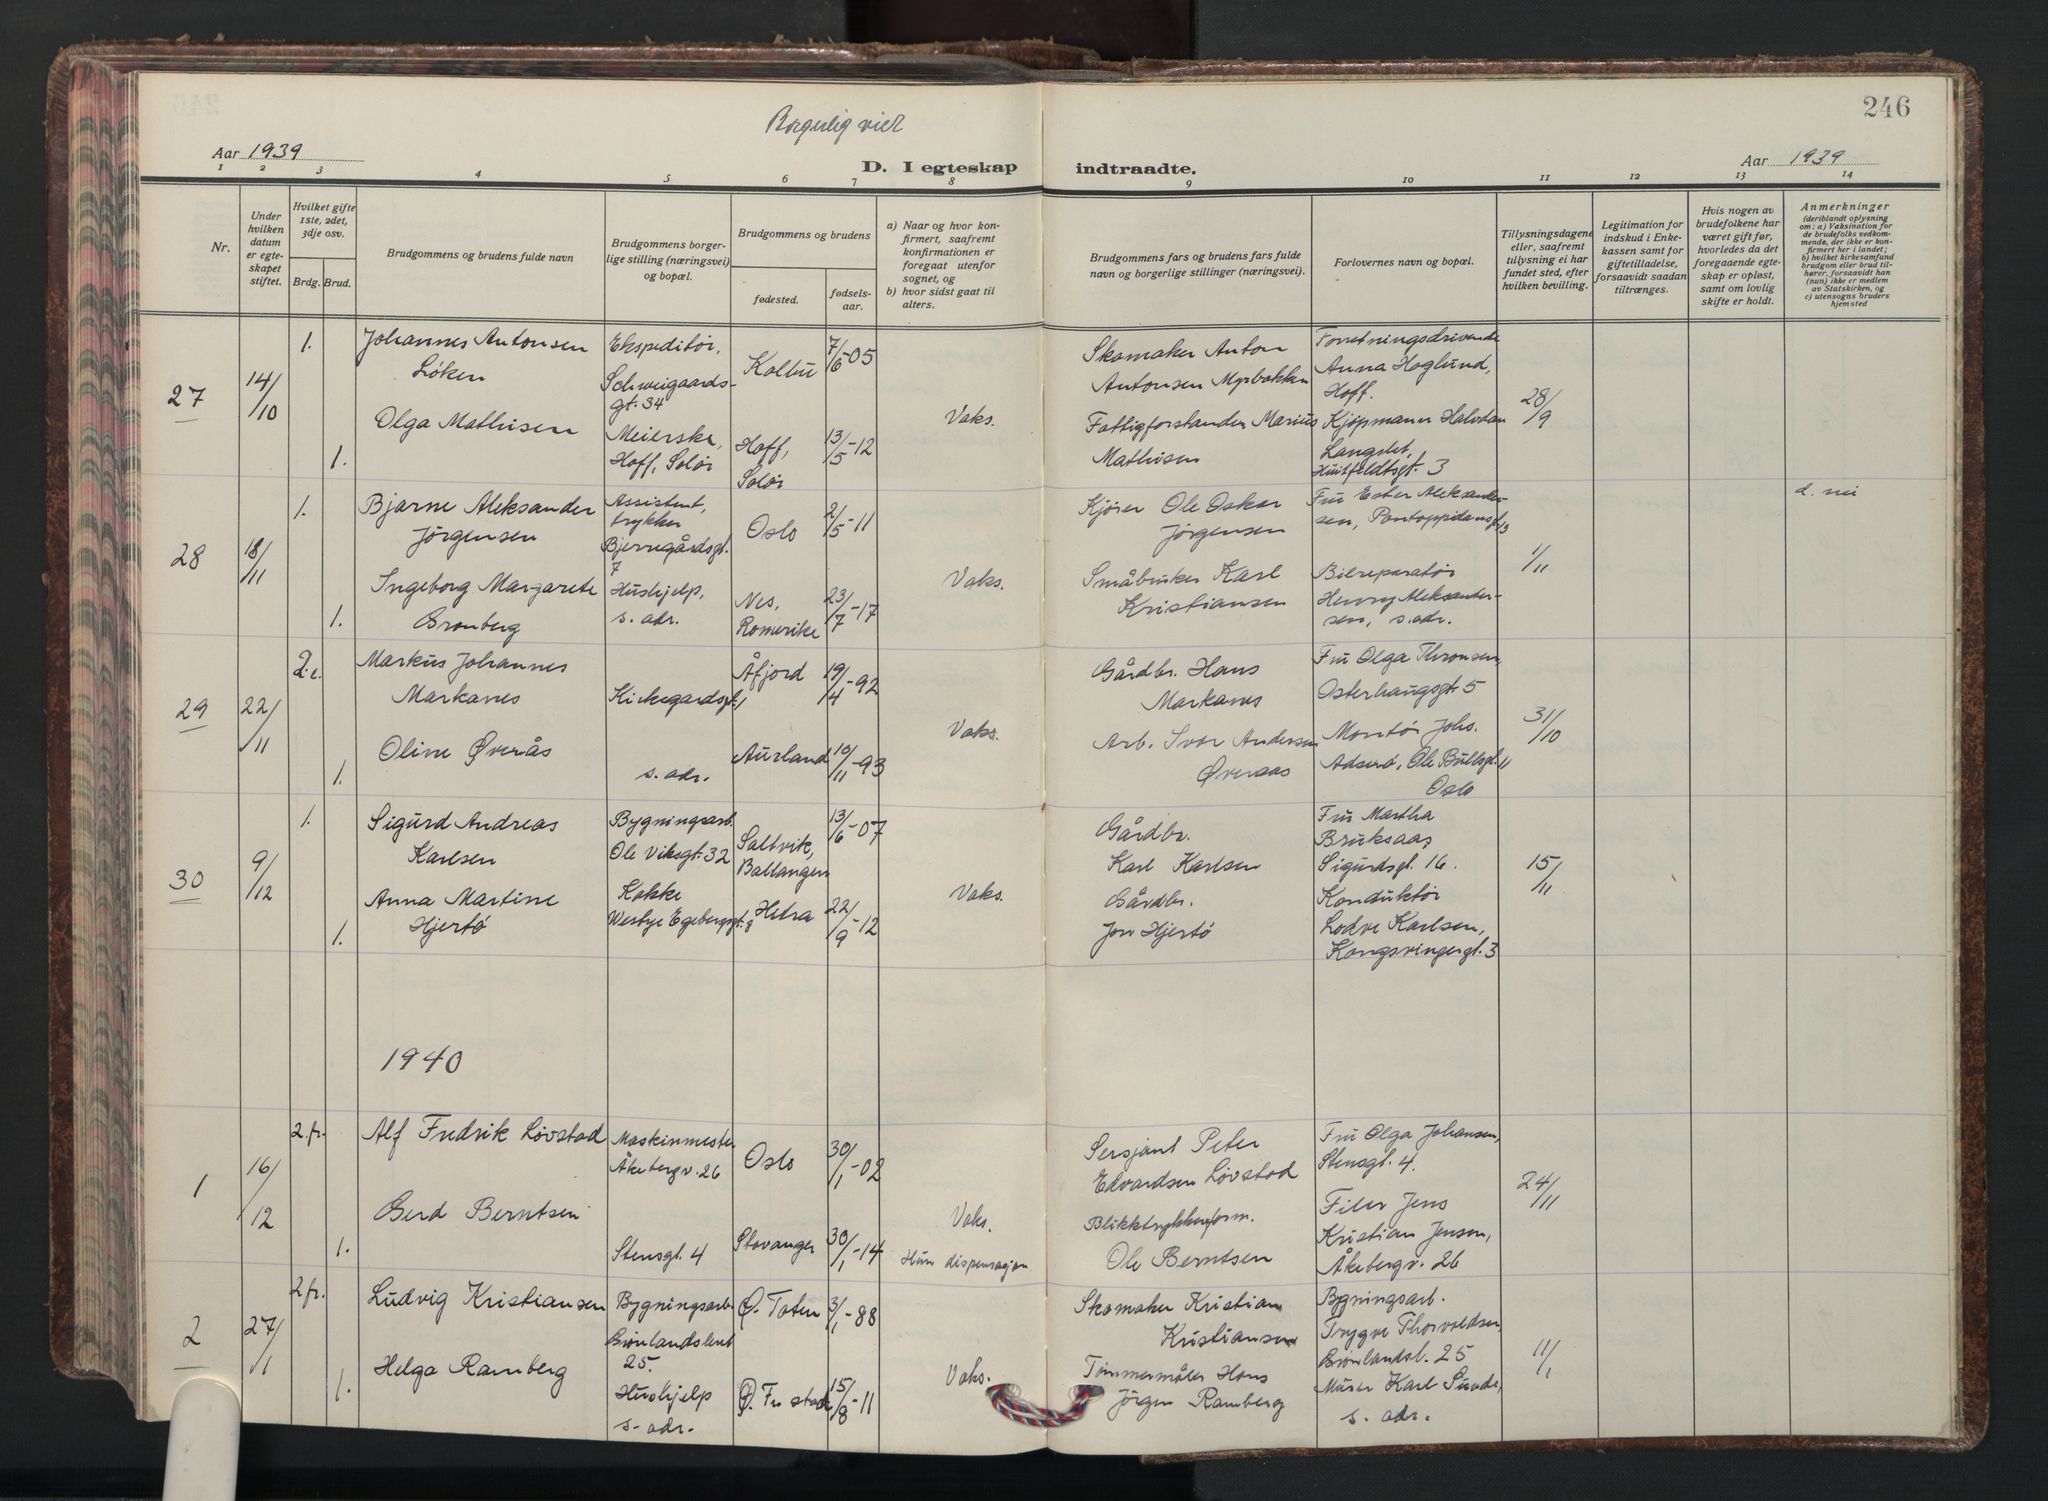 246
Borgerlig viet
Aar 1939
D. I egteskap indtraadte.
Aar 1939
1 2 3 4 5 6 7 8 9 10 11 12 13 14
Nr.
Under hvilken datum er egteskapet stiftet.
Hvilket gifte 1ste, 2det, 3dje osv.
Brdg. Brud.
Brudgommens og brudens fulde navn
Brudgommens borgerlige stilling (næringsvei) og bopæl.
Brudgommens og brudens
fødested.
fødselsaar.
a) Naar og hvor konfirmert, saafremt konfirmationen er foregaat utenfor sognet, og
b) hvor sidst gaat til alters.
Brudgommens fars og brudens fars fulde navn og borgerlige stillinger (næringsvei).
Forlovernes navn og bopæl.
Tillysningsdagene eller, saafremt tillysning ei har fundet sted, efter hvilken bevilling.
Legitimation for indskud i Enkekassen samt for giftetilladelse, forsaavidt saadan tiltrænges.
Hvis nogen av brudefolkene har været gift før, hvorledes da det foregaaende egteskap er opløst, samt om lovlig skifte er holdt.
Anmerkninger
(deriblandt oplysning om: a) Vaksination for de brudefolks vedkommende, der ikke er konfirmert her i landet; b) hvilket kirkesamfund brudgom eller brud tilhører, forsaavidt han (hun) ikke er medlem av Statskirken, og c) utensogns bruders hjemsted
27
14/10
1.
Johannes Antonsen
Løken
Ekspeditør,
Schweigaards-
gt. 34
Kolbu
7/6-05
Skomaker Anton
Antonsen Myrbakken
Forretningsdrivende
Anna Hoglund,
Hoff.
1.
Olga Mathisen
Meierske,
Hoff, Solør
Hoff,
Solør
13/5-12
Vaks.
Fattigforstander Marius
Mathisen
Kjøpmann Halvdan
Langslet,
Huitfeldtsgt. 3
28/9
28
18/11
1.
Bjarne Aleksander
Jørgensen
Assistent,
trykker
Bjerregårdsgt.
7
Oslo
2/5-11
Kjører Ole Oskar
Jørgensen
Fru Ester Aleksander-
sen, Pontoppidansgt. 13
d. nei
1.
Ingeborg Margarete
Gronberg
Hushjelp,
s. adr.
Nes,
Romerike
23/7-17
Vaks.
Småbruker Karl
Kristiansen
Bilreparatør
Henry Aleksander-
sen, s. adr.
1/11
29
22/11
2. e.
Markus Johannes
Markanes
Kirkegardsgt. 1
Åfjord
19/4-92
Gårdbr. Hans
Markanes
Fru Olga Thronsen,
Osterhausgt 5
1.
Oline Øverås
s. adr.
Aurland
10/11-93
Vaks.
Arb. Ivar Andersen
Øveraas
Montør Johs.
Adserø, Ole Bullsgt. 11
Oslo
31/10
30
9/12
1.
Sigurd Andreas
Karlsen
Bygningsarb.
Ole Viksgt. 32
Saltvik,
Ballangen
13/6-07
Gårdbr.
Karl Karlsen
Fru Martha
Bruksaas
Sigurdsgt. 16.
1.
Anna Martine
Hjertø
Kokke
Westye Egebergsgt. 8
Hitra
22/9-12
Vaks.
Gårdbr.
Jon Hjertø
Konduktør
Lodve Karlsen,
Kongsvingergt. 3
15/11
1940
1
16/12
2. fr.
Alf Fredrik Løvstad
Maskinmester
Åkebergv. 26
Oslo
30/1-02
Sersjant Peter
Edvardsen Løvstad
Fru Olga Johansen,
Stensgt. 4.
1.
Gerd Berntsen
Stensgt. 4
Stavanger
30/1-14
Vaks.
Hun dispensasjon
Blikktrykkerform.
Ole Berntsen
Filer Jens
Kristian Jensen,
Åkebergv. 26
24/11
2
27/1
2 fr.
Ludvig Kristiansen
Bygningsarb.
Grønlandsleret
25.
Ø. Toten
3/1-88
Skomaker Kristian
Kristiansen
Bygningsarb.
Trygve Thorvaldsen,
Grønlandsl. 25
1.
Helga Ramberg
Hushjelp
s. adr.
Ø. Fr stad
15/8-11
Vaks.
Tømmermåler Hans
Jørgen Ramberg
Murer Karl Sunde,
s. adr.
11/1